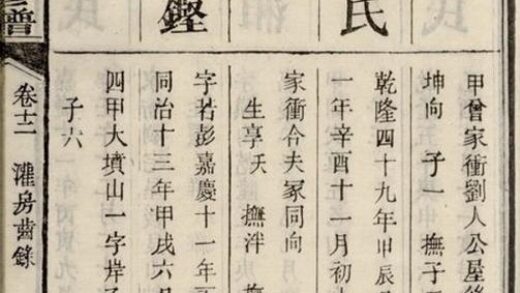 氏
甲曾家衝劉人公屋後
坤向 子一 撫子
乾隆四十九年甲辰
一年辛酉十一月初
家衝合夫冢同向
生享夭 撫泮 撫
鏗
字若彭嘉慶十一年
同治十三年甲戌六月
四甲大墳山一字岸
子六
譜
卷十二 灌房齒錄